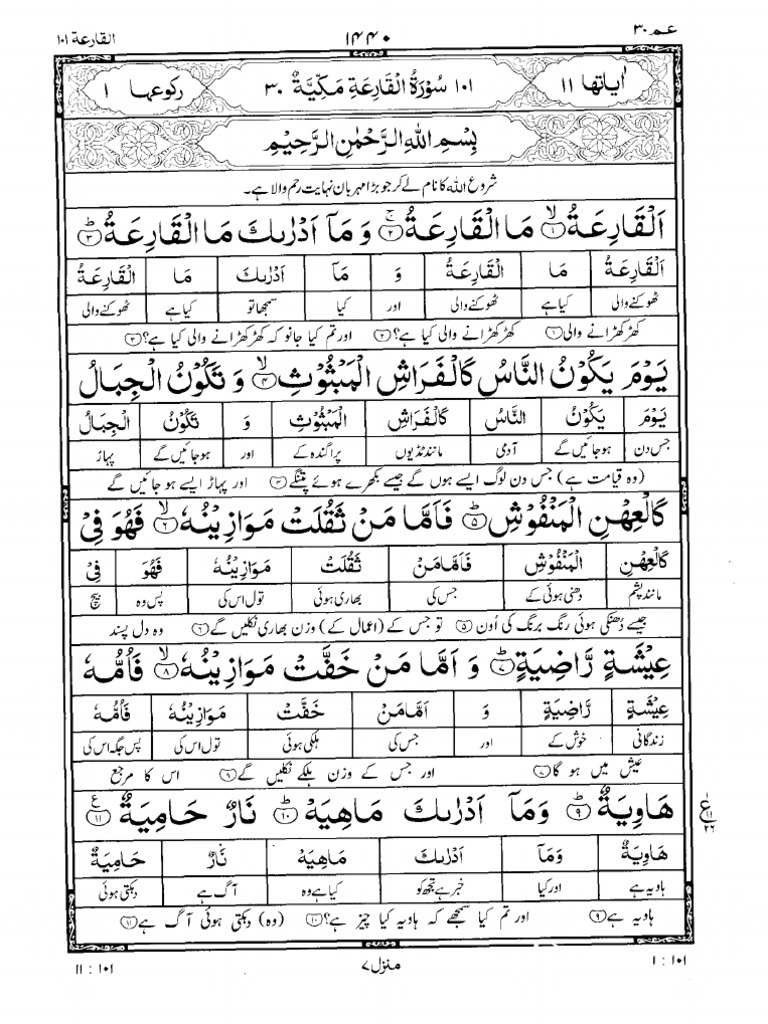 عـم ۳۰ ۱۴۴۰ القارعة ۱۰۱
اٰیاتها ۱۱ ۱۰۱ سُوْرَةُ الْقَارِعَةِ مَکِّیَّةٌ ۳۰ رکوعها ۱
بِسْمِ اللهِ الرَّحْمٰنِ الرَّحِیْمِ
شروع اللہ کا نام لے کر جو بڑا مہربان نہایت رحم والا ہے۔
اَلْقَارِعَةُ ۙ﴿۱﴾ مَا الْقَارِعَةُ ۚ﴿۲﴾ وَ مَاۤ اَدْرٰىكَ مَا الْقَارِعَةُ ؕ﴿۳﴾
اَلْقَارِعَةُ مَا الْقَارِعَةُ وَ مَاۤ اَدْرٰىكَ مَا الْقَارِعَةُ
ٹھوکنے والی کیا ہے ٹھوکنے والی اور کیا سمجھا تو کیا ہے ٹھوکنے والی
کھڑکھڑانے والی ﴿۱﴾ کھڑکھڑانے والی کیا ہے؟ ﴿۲﴾ اور تم کیا جانو کہ کھڑکھڑانے والی کیا ہے؟ ﴿۳﴾
یَوْمَ یَكُوْنُ النَّاسُ كَالْفَرَاشِ الْمَبْثُوْثِ ۙ﴿۴﴾ وَ تَكُوْنُ الْجِبَالُ
یَوْمَ یَكُوْنُ النَّاسُ كَالْفَرَاشِ الْمَبْثُوْثِ وَ تَكُوْنُ الْجِبَالُ
جس دن ہو جائیں گے آدمی مانند ٹڈیوں پراگندہ کے اور ہو جائیں گے پہاڑ
(وہ قیامت ہے) جس دن لوگ ایسے ہوں گے جیسے بکھرے ہوئے پتنگے ﴿۴﴾ اور پہاڑ ایسے ہو جائیں گے
كَالْعِهْنِ الْمَنْفُوْشِ ؕ﴿۵﴾ فَاَمَّا مَنْ ثَقُلَتْ مَوَازِیْنُهٗ ۙ﴿۶﴾ فَهُوَ فِیْ
كَالْعِهْنِ الْمَنْفُوْشِ فَاَمَّا مَنْ ثَقُلَتْ مَوَازِیْنُهٗ فَهُوَ فِیْ
مانند پشم دھنی ہوئی کے جس کی بھاری ہوئی تول اس کی پس وہ بیچ
جیسے دُھنکی ہوئی رنگ برنگ کی اُون ﴿۵﴾ تو جس کے (اعمال کے) وزن بھاری نکلیں گے ﴿۶﴾ وہ دل پسند
عِیْشَةٍ رَّاضِیَةٍ ؕ﴿۷﴾ وَ اَمَّا مَنْ خَفَّتْ مَوَازِیْنُهٗ ۙ﴿۸﴾ فَاُمُّهٗ
عِیْشَةٍ رَّاضِیَةٍ وَ اَمَّا مَنْ خَفَّتْ مَوَازِیْنُهٗ فَاُمُّهٗ
زندگانی خوش کے اور جس کی ہلکی ہوئی تول اس کی پس جگہ اس کی
عیش میں ہو گا اور جس کے وزن ہلکے نکلیں گے اس کا مرجع
هَاوِیَةٌ ؕ﴿۹﴾ وَمَاۤ اَدْرٰىكَ مَاهِیَهْ ؕ﴿۱۰﴾ نَارٌ حَامِیَةٌ ﴿۱۱﴾ ع
هَاوِیَةٌ وَمَاۤ اَدْرٰىكَ مَاهِیَهْ نَارٌ حَامِیَةٌ
ہاویہ ہے اور کیا خبر ہے تجھ کو کیا ہے وہ آگ ہے دہکتی ہوئی
ہاویہ ہے ﴿۹﴾ اور تم کیا سمجھے کہ ہاویہ کیا چیز ہے؟ ﴿۱۰﴾ (وہ) دہکتی ہوئی آگ ہے ﴿۱۱﴾
۱۰۱ : ۱ منزل ۷ ۱۰۱ : ۱۱